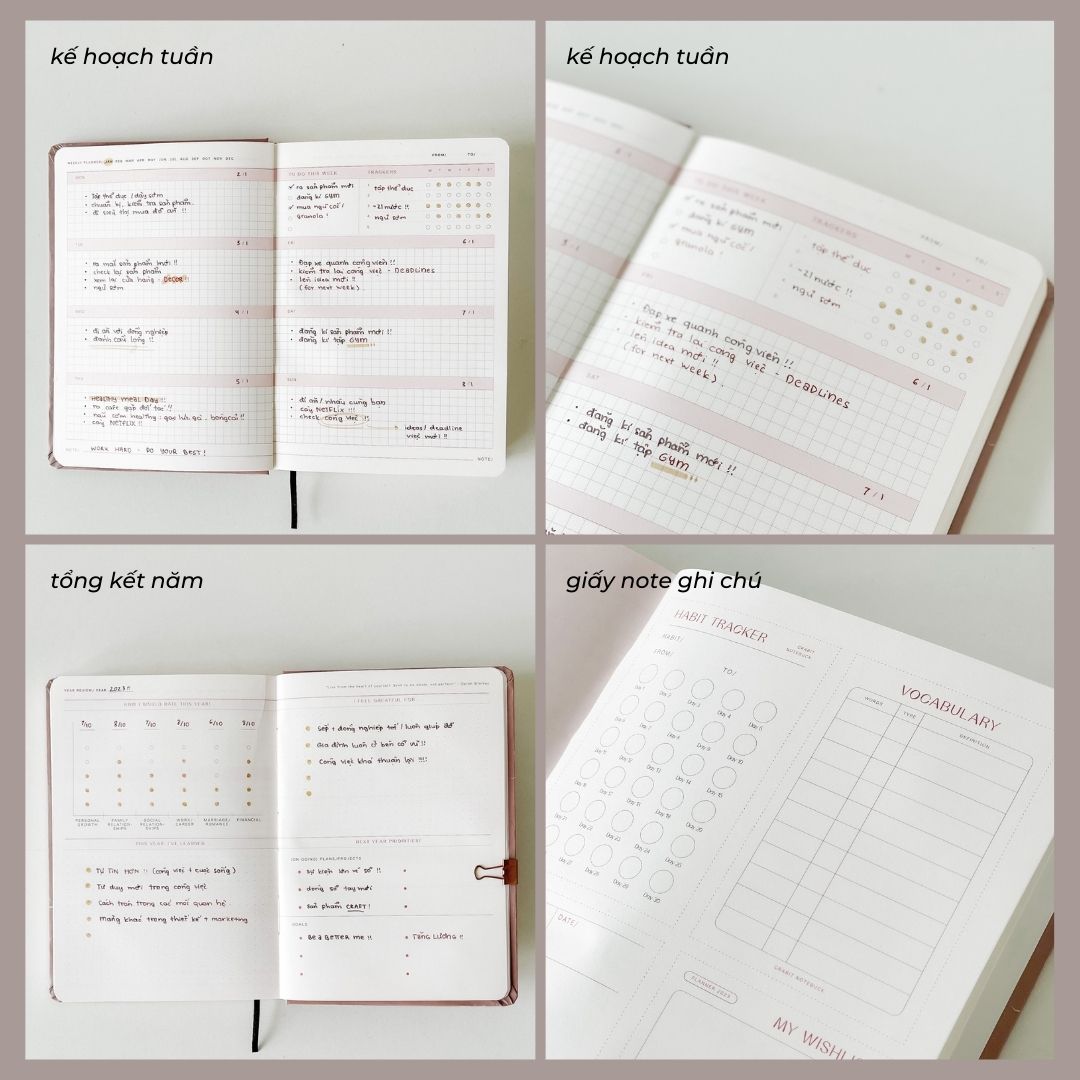 kế hoạch tuần
WEEKLY PLANNER/ JAN FEB MAR APR MAY JUN JUL AUG SEP OCT NOV DEC
FROM/ TO/
MON 2/1
• tập thể dục / dậy sớm
• chuẩn bị, kiểm tra sản phẩm.
• đi siêu thị mua đồ ăn !!
TUE 3/1
• ra mắt sản phẩm mới !!
• check lại sản phẩm
• xem lại cửa hàng - DECOR!
• ngủ sớm
WED 4/1
• đi ăn với đồng nghiệp
• đánh cầu lông !!
THU 5/1
• HEALTHY MEAL DAY !!
• ra cafe gặp đối tác !!
• cày NETFLIX !!
NOTE/ WORK HARD - DO YOUR BEST!
TO DO THIS WEEK
✓ ra sản phẩm mới
đăng kí GYM
✓ mua ngũ cốc /
granola !
TRACKERS M T W T F S S
tập thể dục
~2l nước !!
ngủ sớm
FRI 6/1
• Đạp xe quanh công viên !!
• kiểm tra lại công việc - DEADLINES
• lên idea mới !!
(for next week).
SAT 7/1
• đăng kí sản phẩm mới !!
• đăng kí tập GYM
SUN 8/1
• đi ăn / nhảy cùng bạn
• cày NETFLIX !!!
• check công việc !!
ideas / deadline
việc mới !!
NOTE/
kế hoạch tuần
3/1
TO DO THIS WEEK
✓ ra sản phẩm mới
đăng kí GYM
✓ mua ngũ cốc /
granola !
TRACKERS
FROM/
TO/
tập thể dục
~2l nước !!
ngủ sớm
FRI
6/1
• Đạp xe quanh công viên !!
• kiểm tra lại công việc - DEADLINES
• lên idea mới !!
(for next week).
SAT
7/1
• đăng kí sản phẩm mới !!
• đăng kí tập GYM
tổng kết năm
YEAR REVIEW/ YEAR 2023 !!
HOW I WOULD RATE THIS YEAR?
7/10 8/10 7/10 8/10 6/10 8/10
PERSONAL GROWTH
FAMILY RELATION-SHIPS
SOCIAL RELATION-SHIPS
WORK/ CAREER
MARRIAGE/ ROMANCE
FINANCIAL
THIS YEAR I'VE LEARNED
TỰ TIN HƠN !! (công việc + cuộc sống)
Tư duy mới trong công việc
Cách trân trọng các mối quan hệ
Mảng khác trong thiết kế + marketing
I FEEL GREATFUL FOR
Sếp + đồng nghiệp tốt / luôn giúp đỡ
Gia đình luôn ở bên cổ vũ !!
Công việc khá thuận lợi !!!
NEXT YEAR PRIORITIES!
(ON GOING) PLANS/PROJECTS
• Sự kiện lớn về sổ !!
• dòng sổ tay mới
• sản phẩm CRAFT!
GOALS
• Be a BETTER me !!
• TĂNG LƯƠNG !!
giấy note ghi chú
HABIT TRACKER
HABIT/
CRABIT
NOTEBUCK
FROM/
TO/
VOCABULARY
WORDS TYPE DEFINITION
CRABIT NOTEBUCK
DATE/
PLANNER 2023